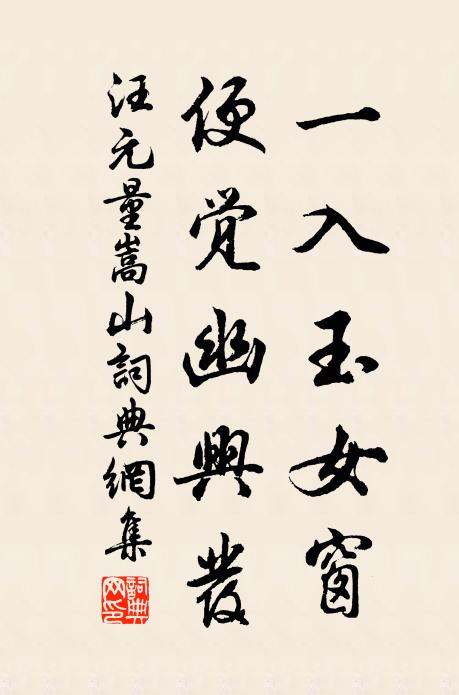 一入玉女窗
便觉幽興發
汪元量嵩山詞典網集
詞典网印